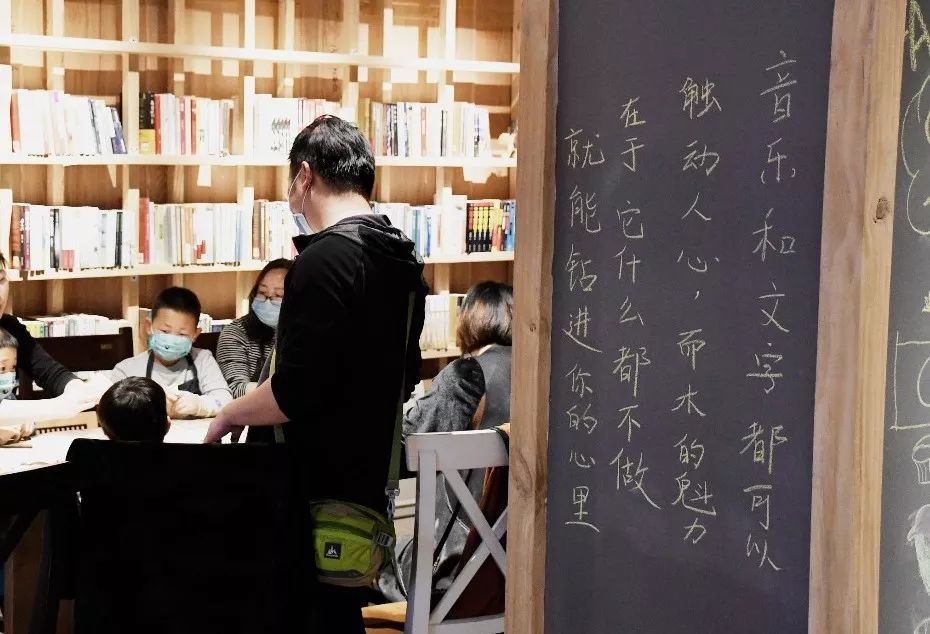 音乐和文字都可以
触动人心，而木的魁力
在于它什么都不做
就能钻进你的心里